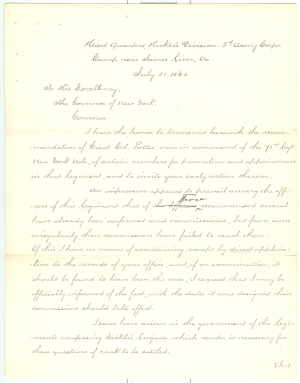 Head Quarters, Hooker's Division, 3d Army Corps
Camp near James River, Va.
July 31. 1862.
To His Excellency,
The Governor of New York.
Governor.
I have the honor to transmit herewith the recom-
mendation of Lieut Col. Potter, now in command of the 71st Regt.
New York Vols, of certain members for promotion and appointment
in that Regiment, and to invite your early action thereon.
An impression appears to prevail among the offi-
cers of this Regiment that of those recommended several
have already been confirmed and commissioned, but from some
irregularity their commissions have failed to reach them.
Of this I have no means of ascertaining, except by direct applica-
tion to the records of your office, and, if on examination, it
should be found to have been the case, I request that I may be
officially informed of the fact, with the date it was designed their
commissions should take effect.
Issues have arisen in the government of the Regi-
ments composing Brigade which render it necessary for
these questions of rank to be settled.